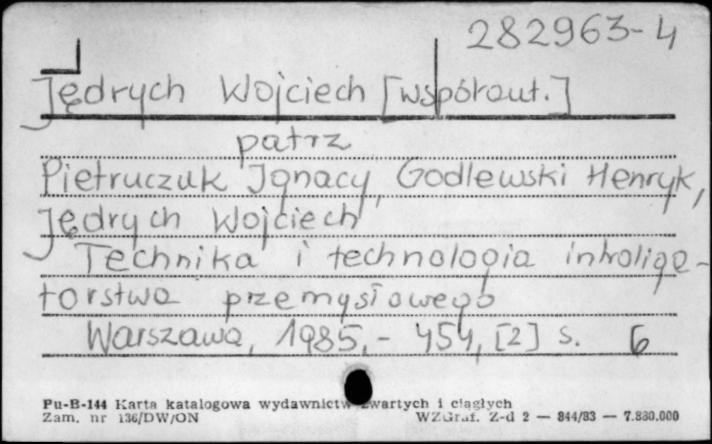 282963-4
Jędrych Wojciech [współaut.]
patrz
Pietruczuk Ignacy, Godlewski Henryk,
Jędrych Wojciech
Technika i technologia introliga-
torstwa przemysłowego
Warszawa, 1985.- 454, [2] s. 6
Pu-B-144 Karta katalogowa wydawnictw zwartych i ciągłych
Zam. nr 136/DW/ON WZGraf. Z-d 2 — 844/83 — 7.880.000